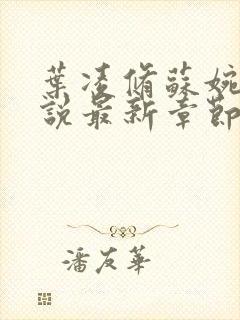 葉凌脩蘇婉
說最新章節
潘友華